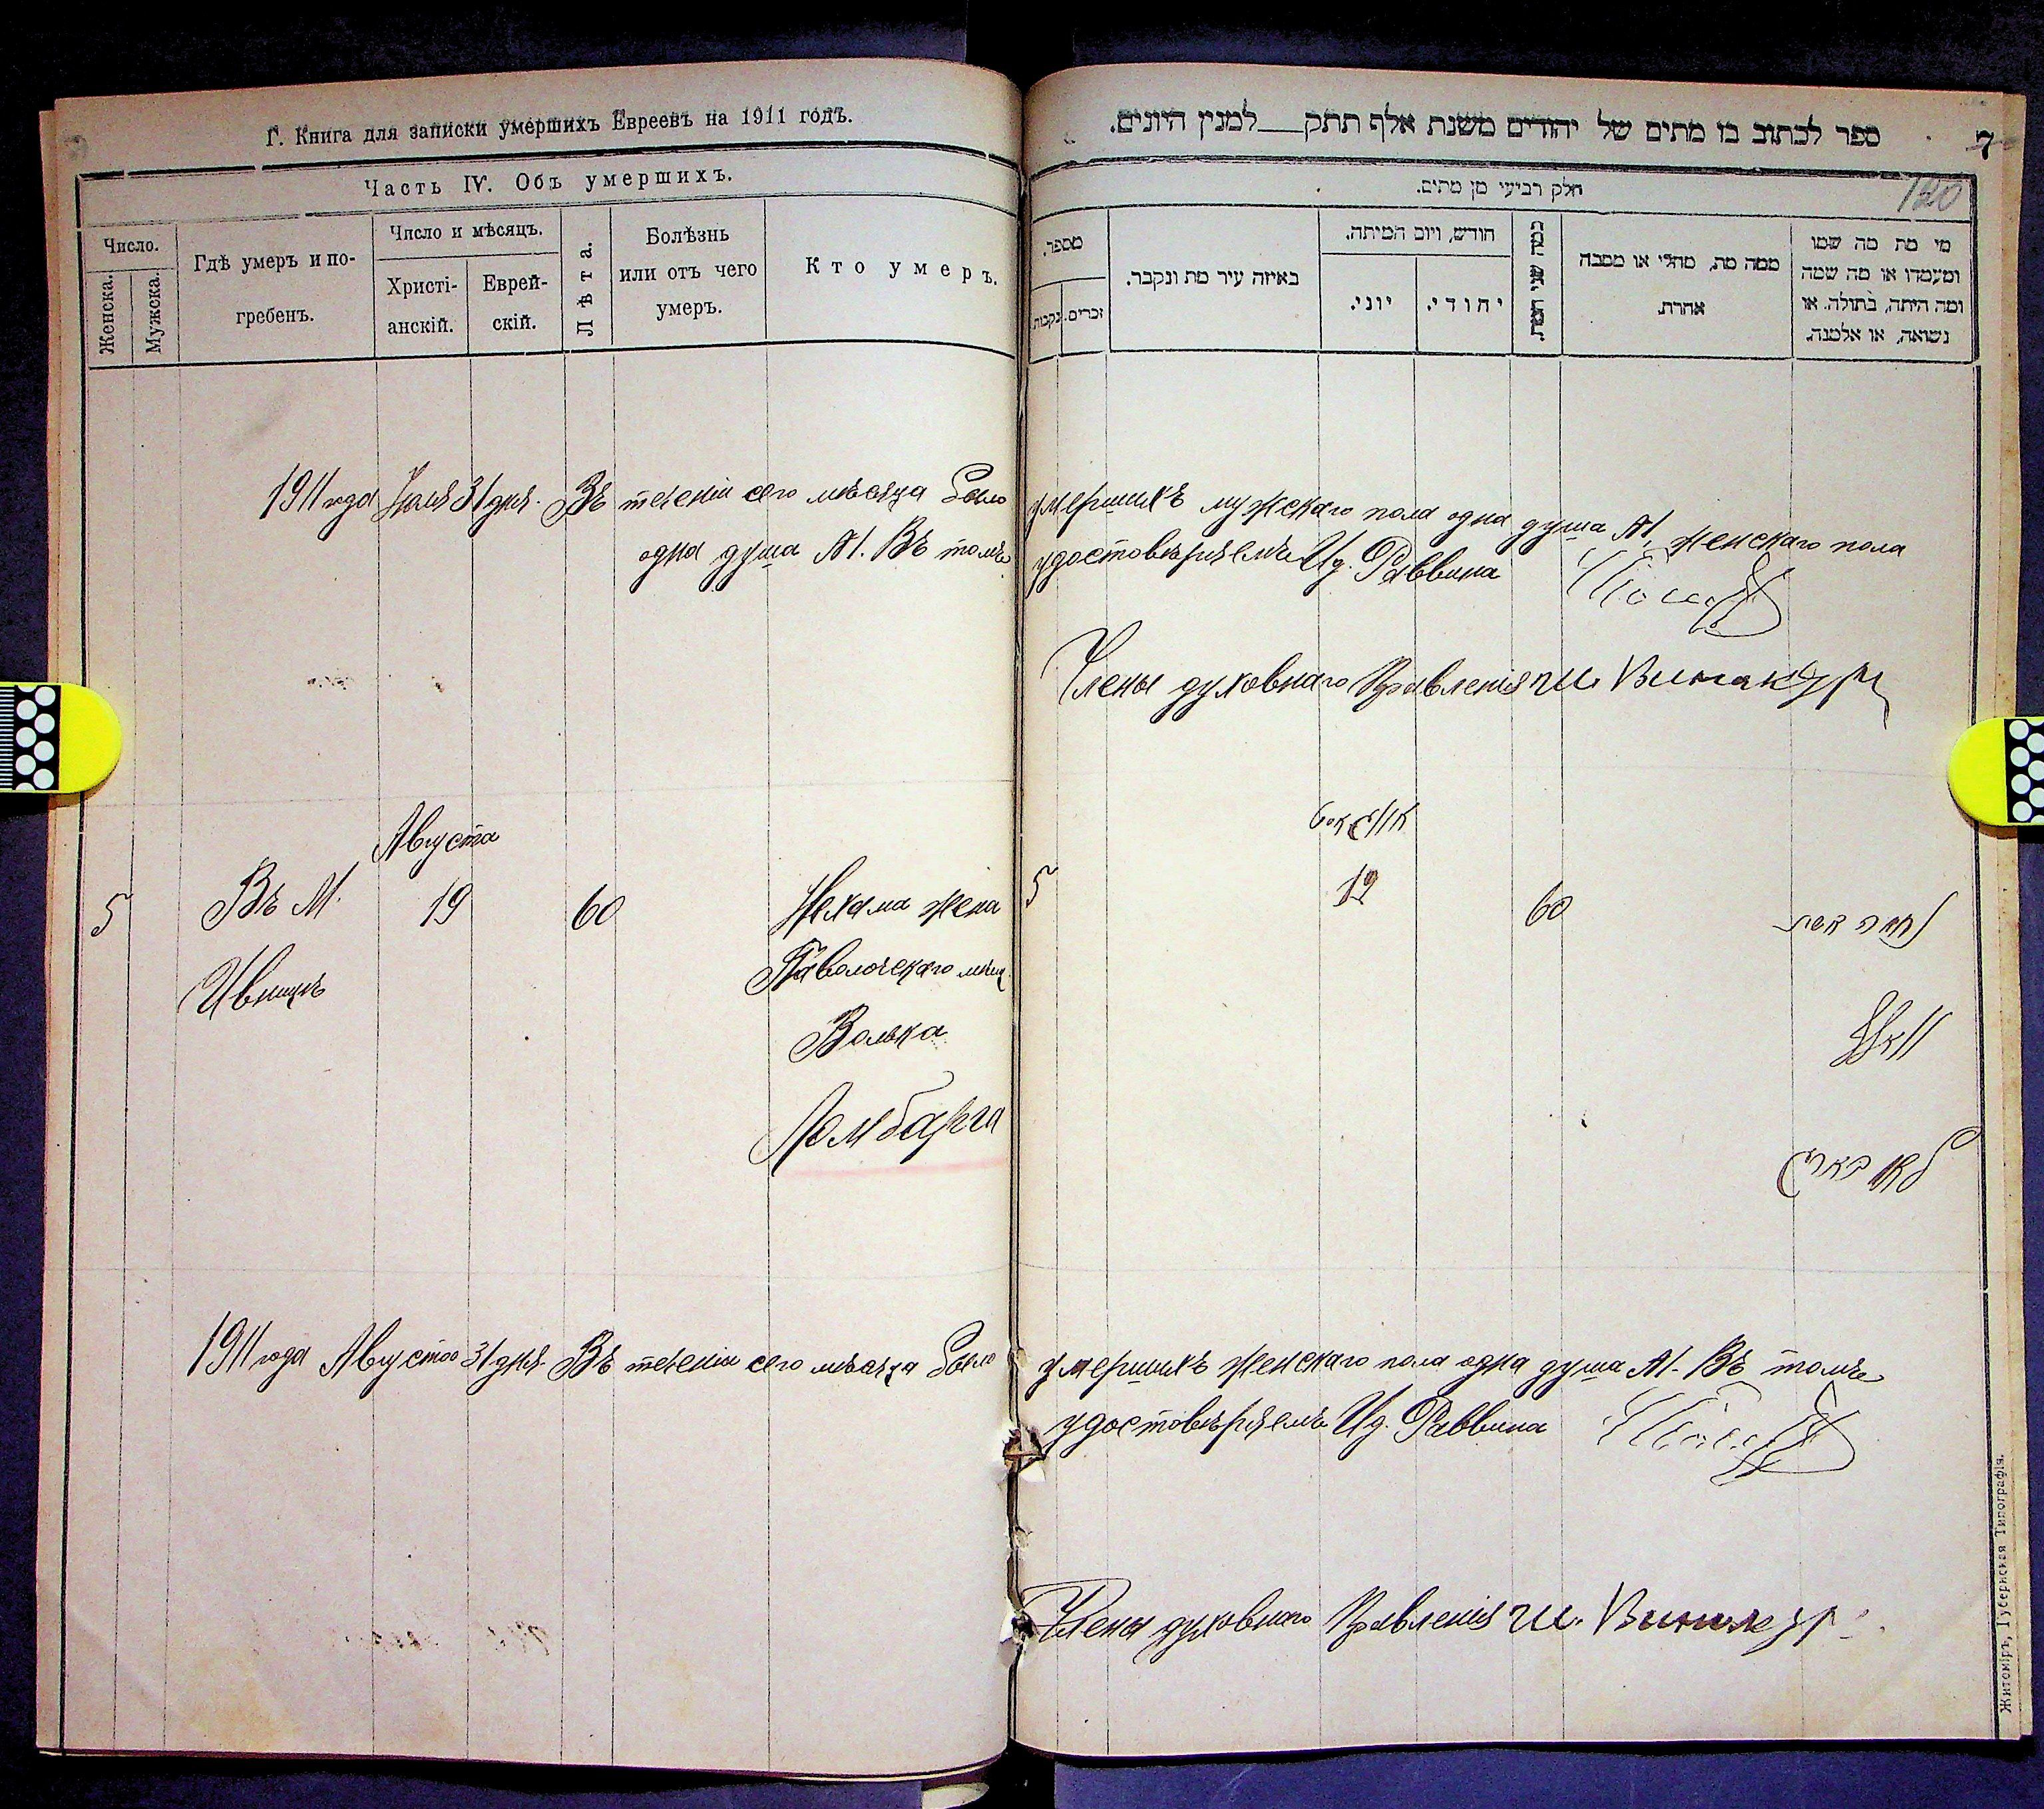 Г. Книга для записки умершихъ Евреевъ на 1911 годъ.
Часть IV. Объ умершихъ.
Число.
Женска.
Мужска.
Гдѣ умеръ и по-
гребенъ.
Число и мѣсяцъ.
Христі-
анскій.
Еврей-
скій.
Лѣта.
Болѣзнь
или отъ чего
умеръ.
Кто умеръ.
1911 года Іюля 31 дня. Въ теченіи сего мѣсяца было
одна душа №1. Въ томъ
Августа
5 Въ М. 19 60 Нехама жена
Ивницѣ Паволочскаго мѣщ.
Волька
Ломбарга
1911 года Августа 31 дня. Въ теченіи сего мѣсяца было
ספר לכתוב בו מתים של יהודים משנת אלף תתק__למנין היונים.
120
חלק רביעי מן מתים.
מספר.
נקבות.
זכרים.
באיזה עיר מת ונקבר.
חודש, ויום המיתה.
יוני.
יהודי.
ממה מת, מחלי או מסבה
אחרת.
מי מת מה שמו
ומעמדו או מה שמה
ומה היתה, בתולה, או
נשואה, או אלמנה.
умершихъ мужескаго пола одна душа №1, женскаго пола
удостовѣряемъ Ид. Раввина
Члены духовнаго Правленія Ш. Винакур
5 19 60
умершихъ женскаго пола одна душа №1. Въ томъ
удостовѣряемъ Ид. Раввина
Члены духовнаго Правленія Ш. Винакур
Житоміръ, Губернская Типографія.